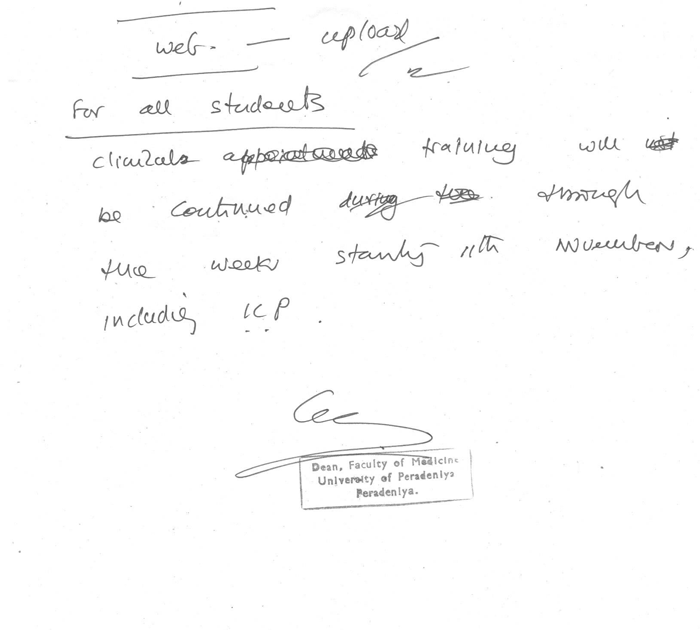 web. — upload
For all students
clinical training will
be continued through
the week starting 11th November,
including ICP.
Dean, Faculty of Medicine
University of Peradeniya
Peradeniya.